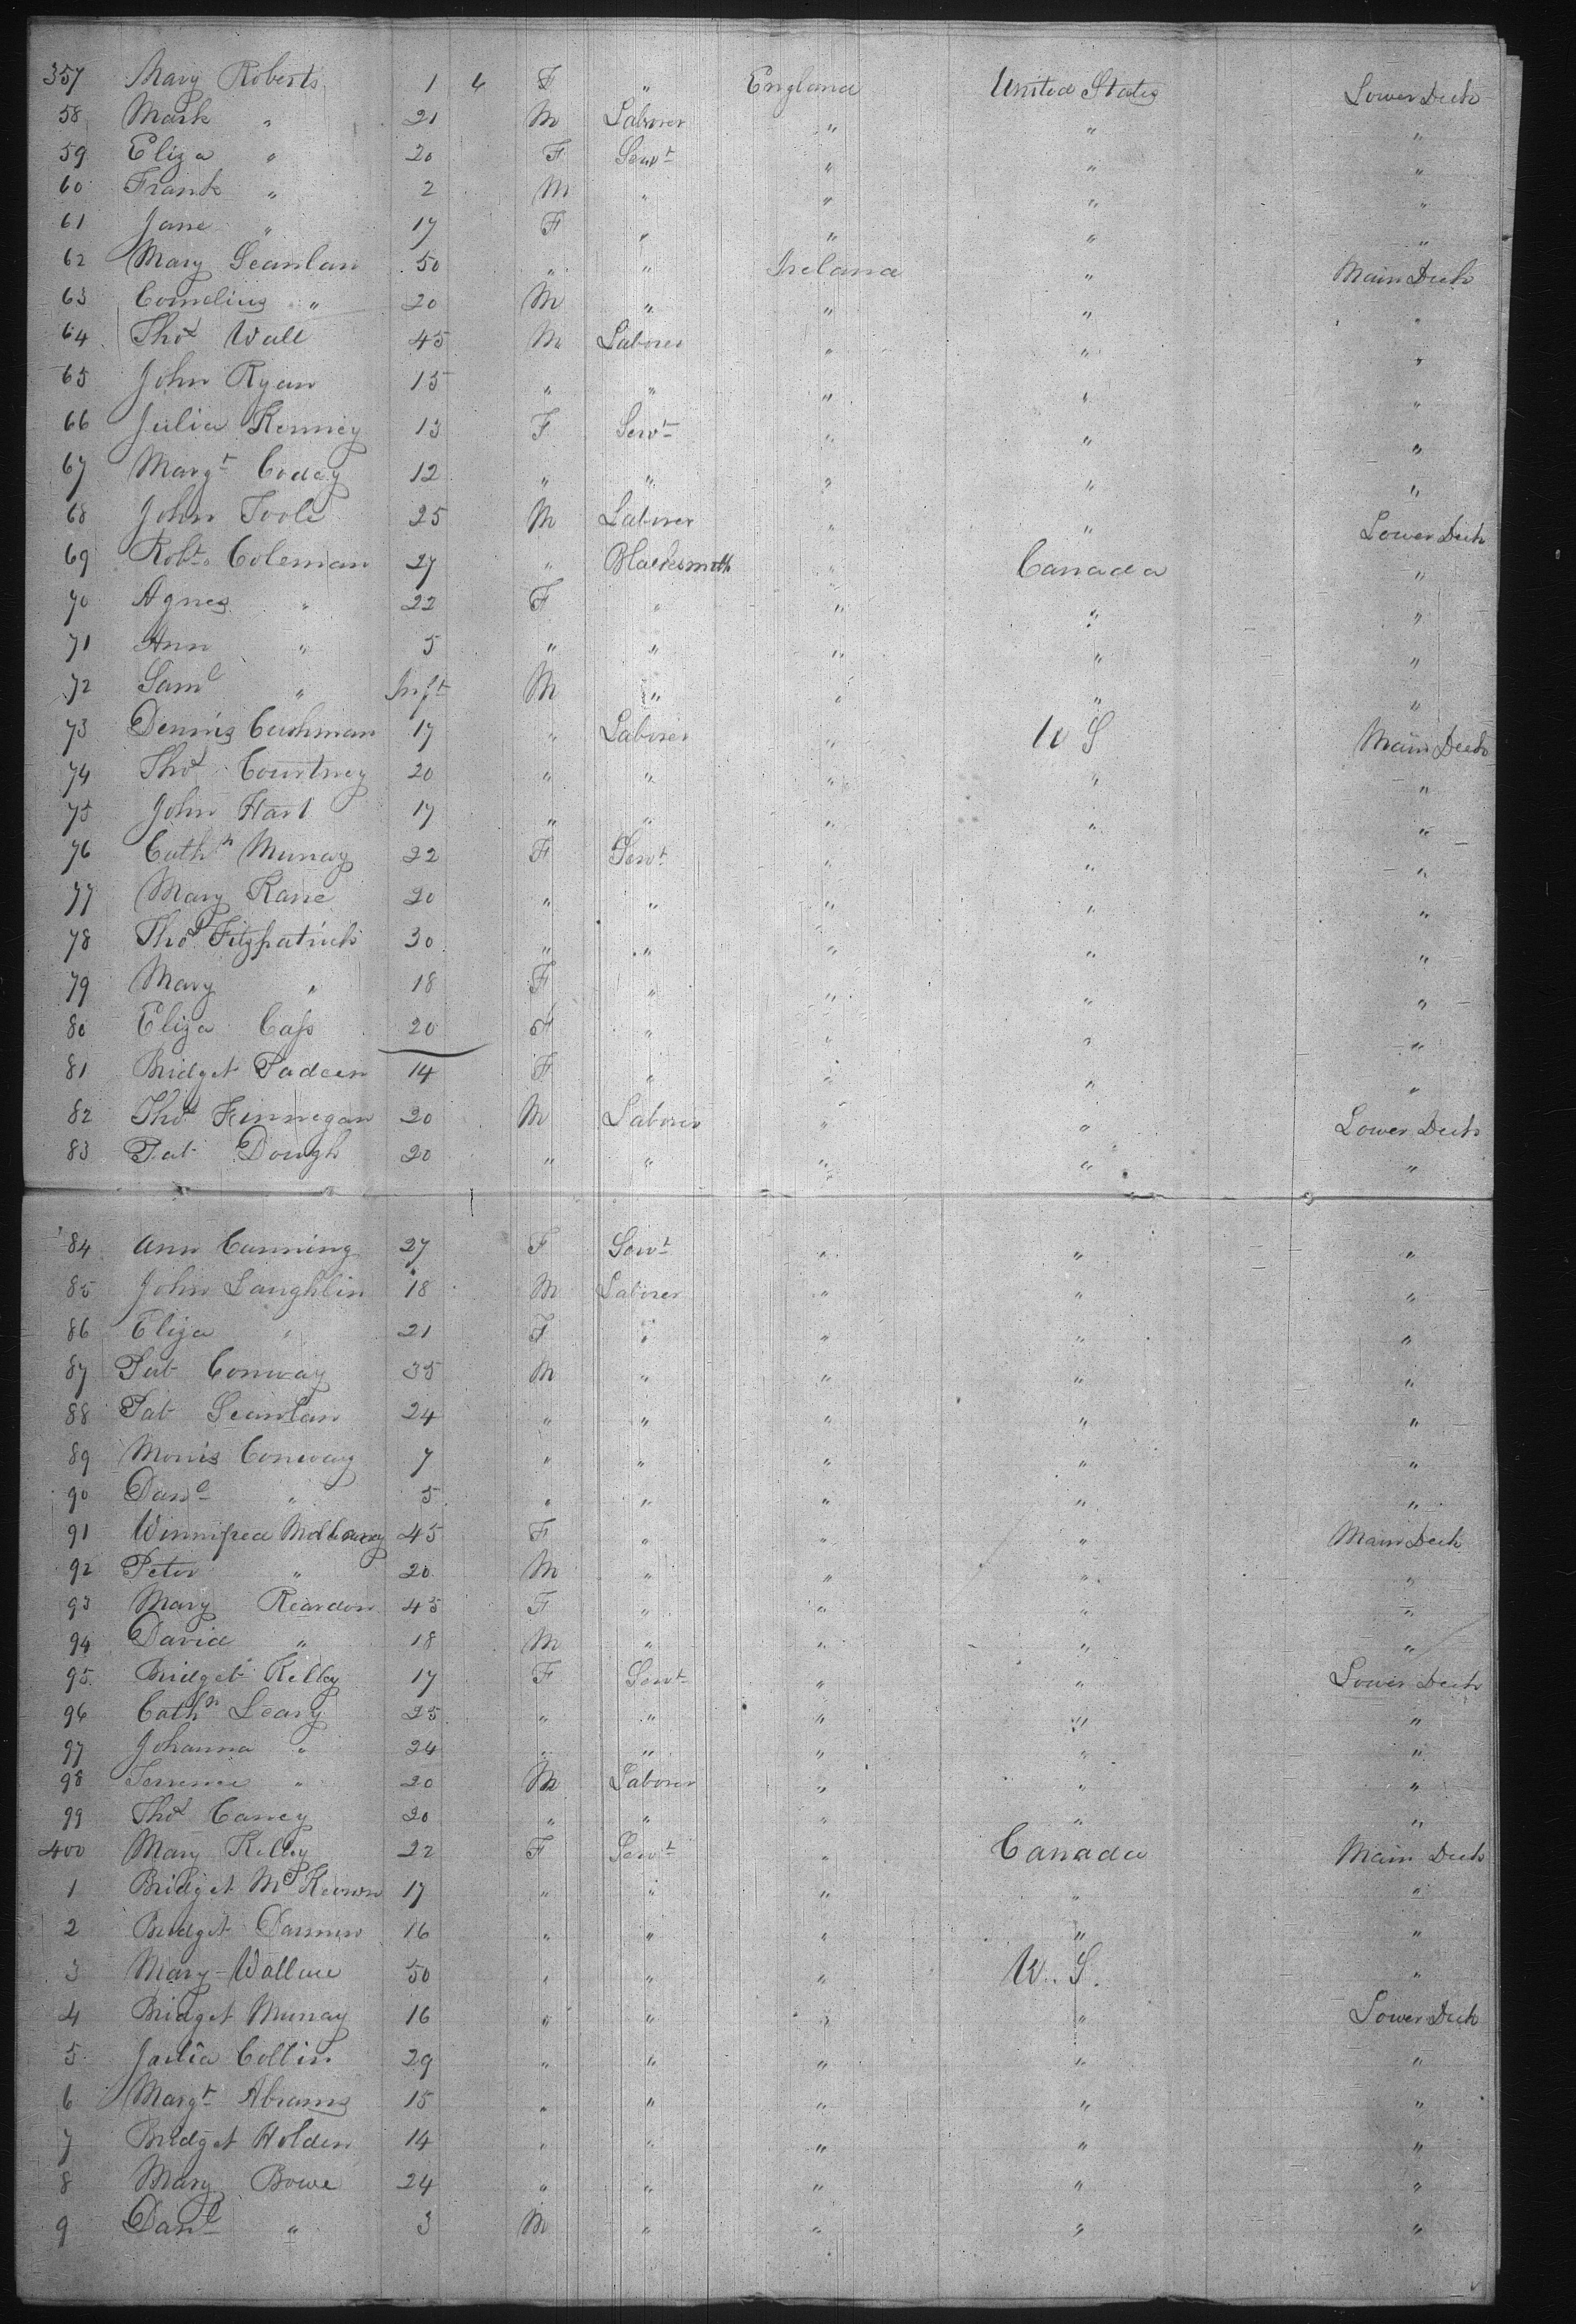 357 Mary Roberts 1 6 F " England United States Lower Deck
58 Mark " 21 M Laborer " " "
59 Eliza " 20 F Servt " " "
60 Frank " 2 M " " " "
61 Jane " 17 F " " " "
62 Mary Scanlan 50 " " Ireland " Main Deck
63 Cornelius " 20 M " " " "
64 Thos Wall 45 M Laborer " " "
65 John Ryan 15 " " " " "
66 Julia Kenney 13 F Servt " " "
67 Margt Coday 12 " " " " "
68 John Toole 25 M Laborer " " Lower Deck
69 Robt Coleman 27 " Blacksmith " Canada "
70 Agnes " 22 F " " " "
71 Ann " 5 " " " " "
72 Saml " Inft M " " " "
73 Dennis Cushman 17 " Laborer " U S Main Deck
74 Thos Courtney 20 " " " " "
75 John Hart 17 " " " " "
76 Cathn Murray 22 F Servt " " "
77 Mary Kane 20 " " " " "
78 Thos Fitzpatrick 30 " " " " "
79 Mary " 18 F " " " "
80 Eliza Cass 20 F " " " "
81 Bridget Padeen 14 F " " " "
82 Thos Finnegan 20 M Laborer " " Lower Deck
83 Pat Dough 20 " " " " "
84 Ann Cunning 27 F Servt " " "
85 John Laughlin 18 M Laborer " " "
86 Eliza " 21 F " " " "
87 Pat Conway 35 M " " " "
88 Pat Scanlan 24 " " " " "
89 Morris Conway 7 " " " " "
90 Danl " 5 " " " " "
91 Winnifred 45 F " " " Main Deck
92 Peter " 20 M " " " "
93 Mary Reardon 45 F " " " "
94 David " 18 M " " " "
95 Bridget Kelley 17 F Servt " " Lower Deck
96 Cathn Leary 25 " " " " "
97 Johanna " 24 " " " " "
98 Terrence " 20 M Laborer " " "
99 Thos Carney 20 " " " " "
400 Mary Kelley 22 F Servt " Canada Main Deck
1 Bridget McKeown 17 " " " " "
2 Bridget 16 " " " " "
3 Mary Wallace 50 " " " U.S. "
4 Bridget Murray 16 " " " " Lower Deck
5 Julia Collin 29 " " " " "
6 Margt Abrams 15 " " " " "
7 Bridget Holden 14 " " " " "
8 Mary Bowe 24 " " " " "
9 Danl " 3 M " " " "